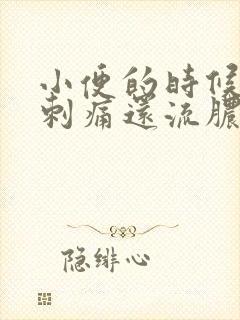 小便的時候
刺痛還流膿
隐绯心